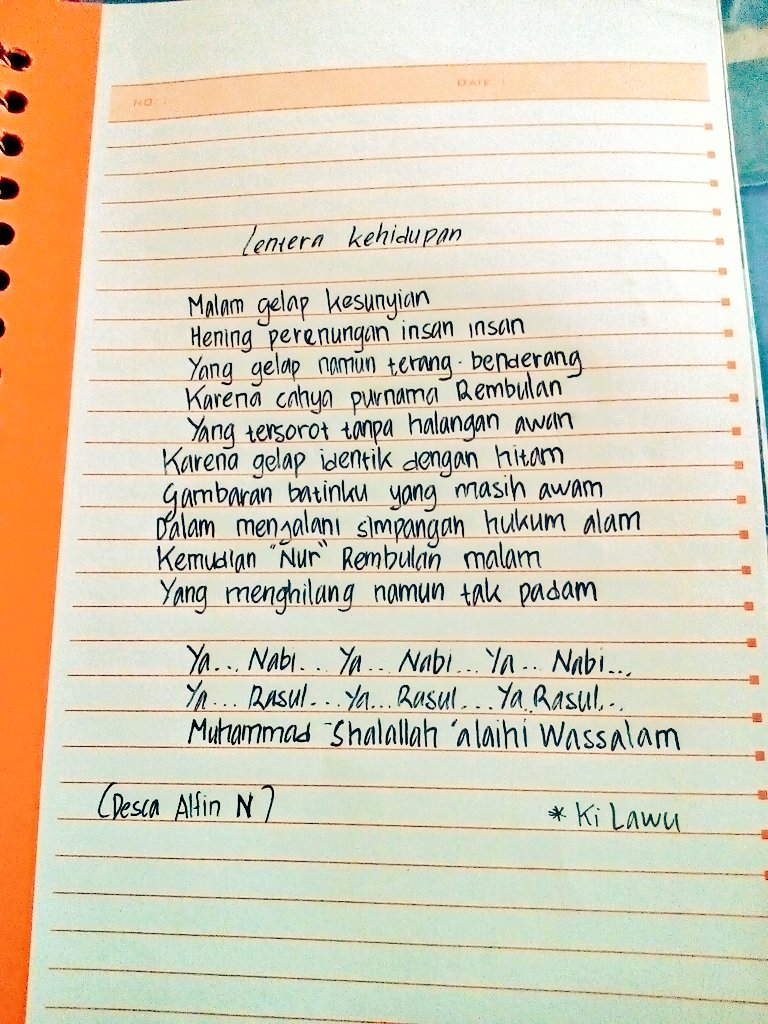 NO. :
DATE :
Lentera kehidupan
Malam gelap kesunyian
Hening perenungan insan insan
Yang gelap namun terang benderang
Karena cahya purnama Rembulan
Yang tersorot tanpa halangan awan
Karena gelap identik dengan hitam
Gambaran batinku yang masih awam
Dalam menjalani simpangan hukum alam
Kemudian "Nur" Rembulan malam
Yang menghilang namun tak padam
Ya... Nabi... Ya... Nabi... Ya... Nabi...
Ya... Rasul... Ya... Rasul... Ya.. Rasul...
Muhammad Shalallah 'alaihi Wassalam
(Desca Alfin N)
* Ki Lawu